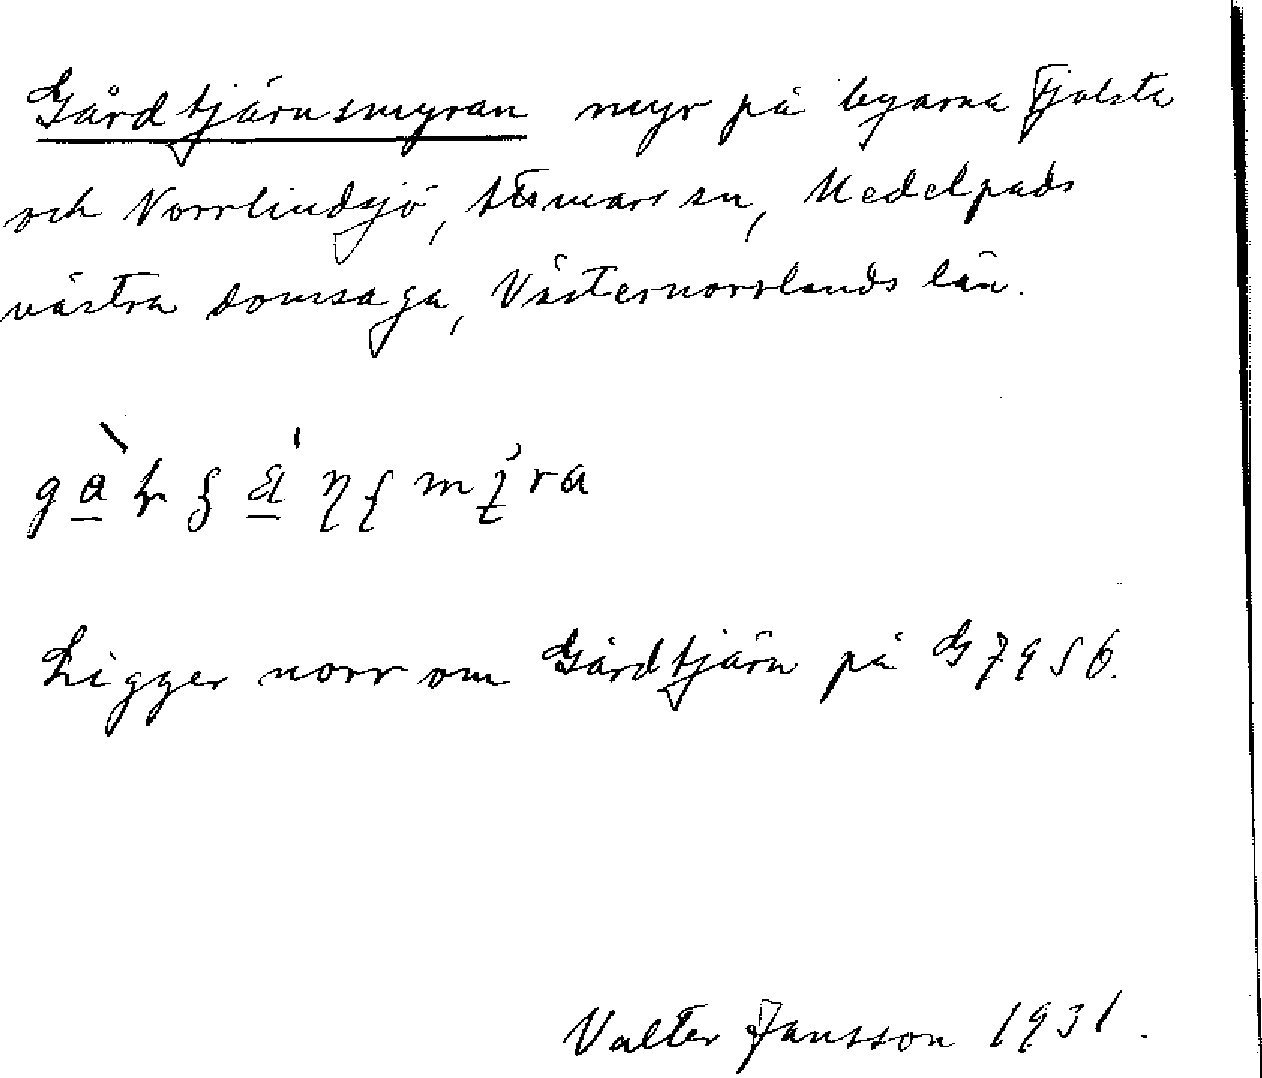 Gårdtjärnsmyran myr på byarna Fjolsta
och Norrlindsjö, Attmars sn, Medelpads
västra domsaga, Västernorrlands län.
Ligger norr om Gårdtjärn på G7956.
Valter Jansson 1931.